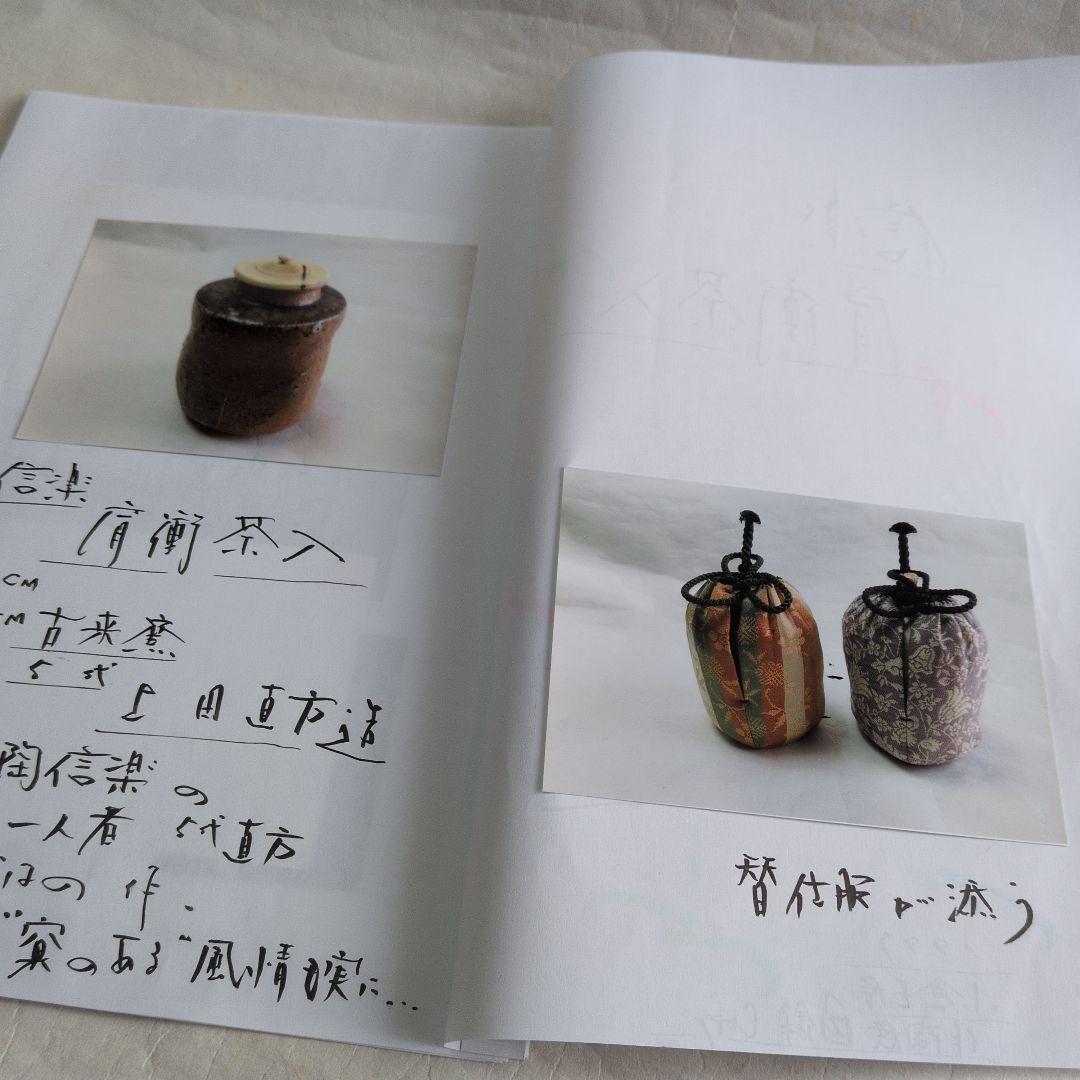 信楽
肩衝茶入
CM
CM 古来窯
5代
上田直方造
陶信楽の
一人者 5代直方
の作.
窯のある"風情
替仕服が添う
信楽
肩衝茶入